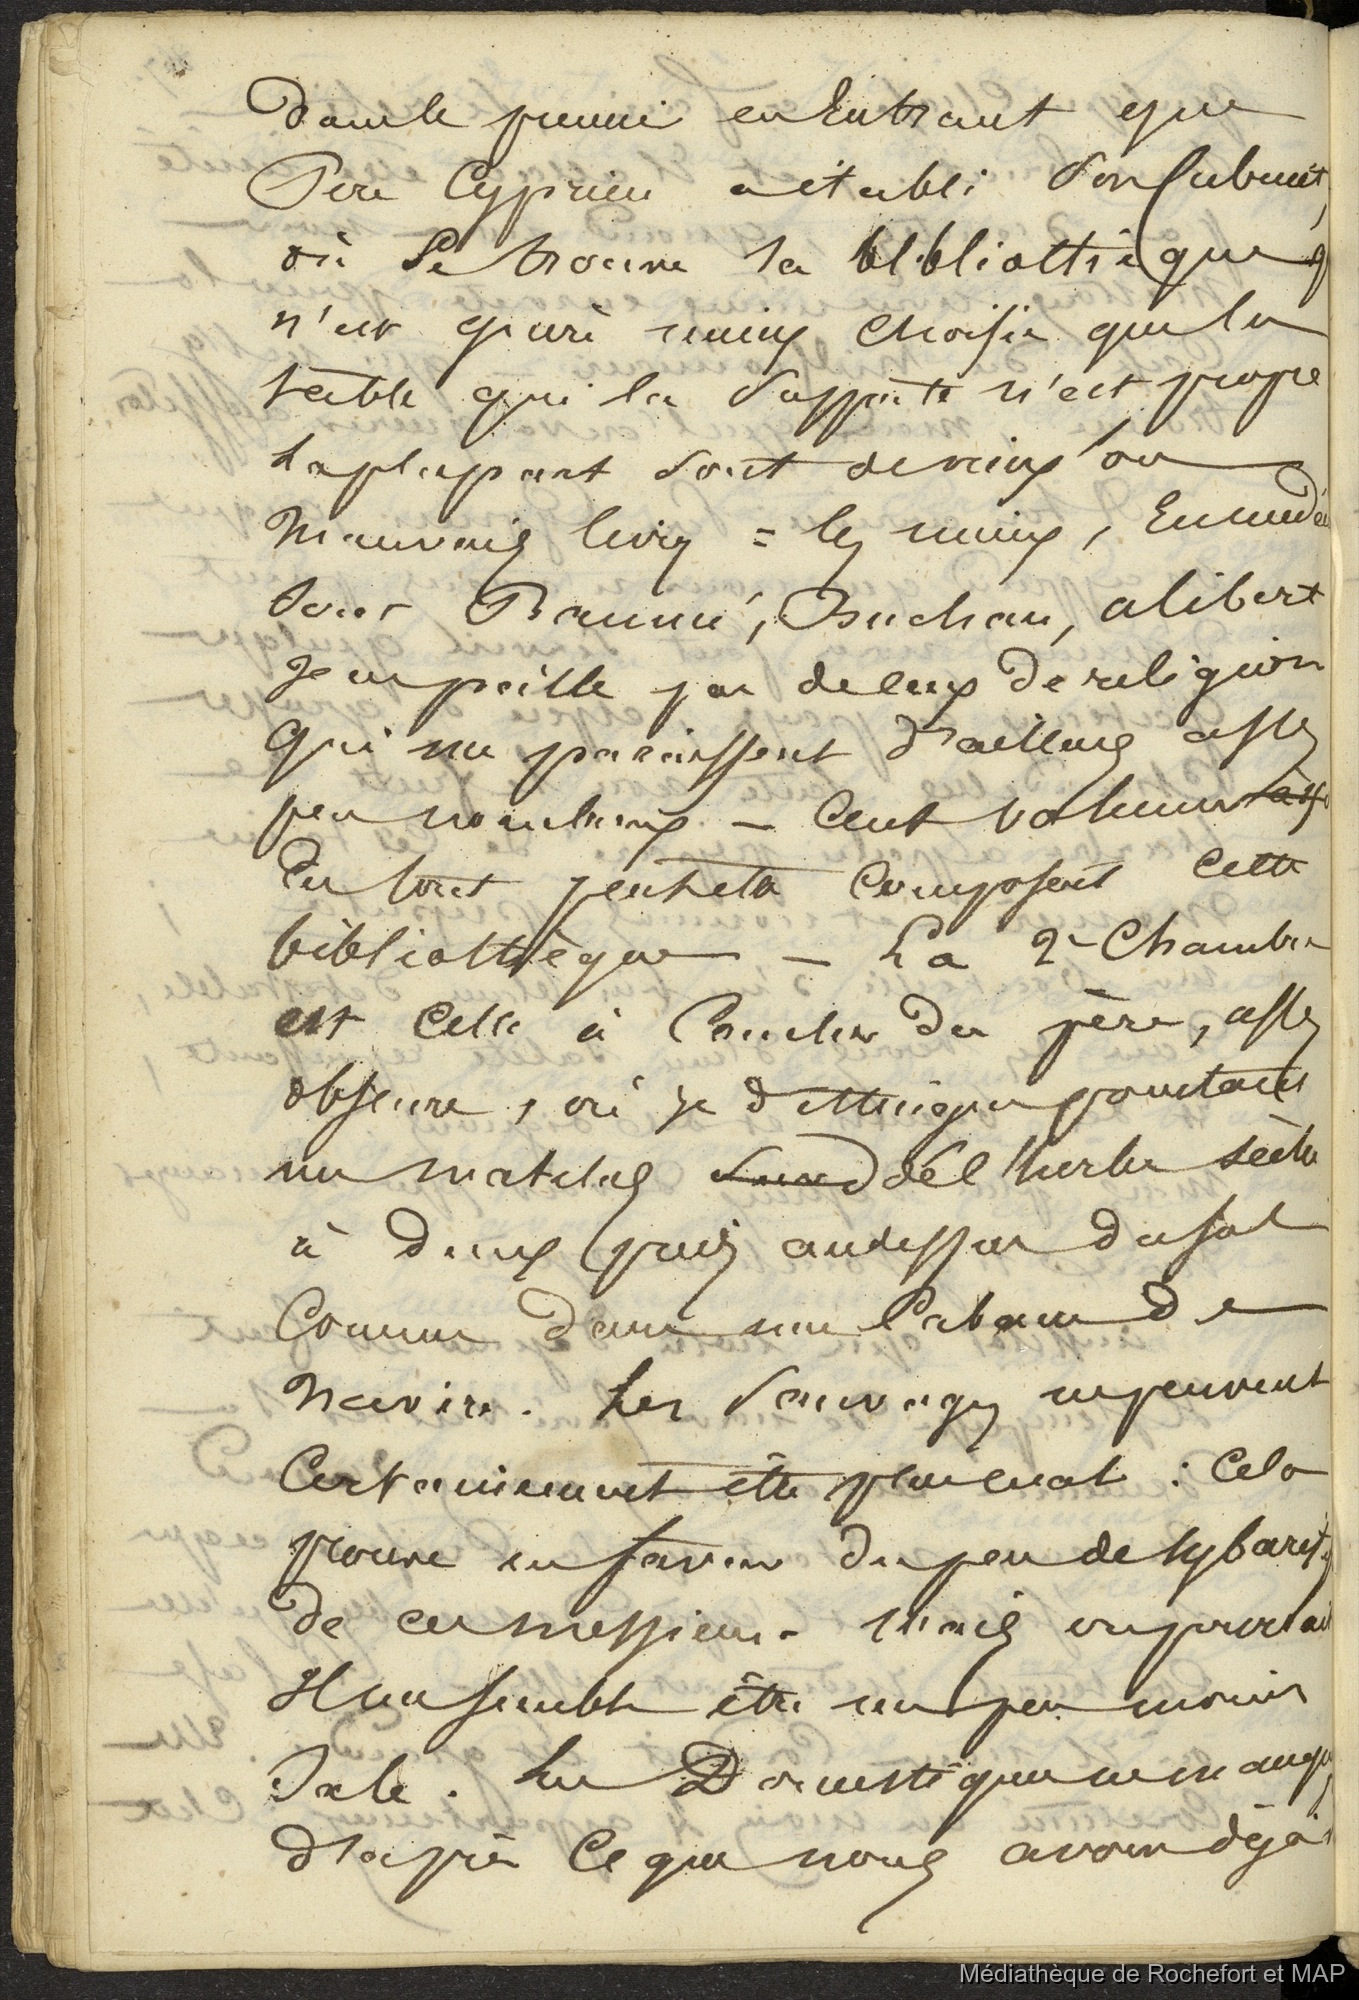 dans le premier en Entrant que
Père Cyprien a établi son Cabinet,
où se trouve sa bibliothèque q
n'est guère mieux choisie que la
table qui la supporte n'est propre
la plupart sont de vieux ou
mauvais livres = les mieux, En médec
sont Baumé, Buchan, alibert
je ne parle pas de ceux de religion
qui me paraissent d'ailleurs assez
peu nombreux — Cent volumes
En tout peut être composent cette
bibliothèque — La 2e Chambre
est celle à Coucher du père, assez
obscure, où je distingue pourtant
un matelas de l'herbe sèche
à deux pieds audessus du sol
Comme dans une Cabane de
Navire. Les Sauvages ne peuvent
Certainement être plus mal : Cela
prouve en faveur du peu de sybarit
de ces messieurs. Mais on pourrait
Il me semble être un peu moins
Sale. Les Domestiques ne manque
d'après ce que nous avons déjà
Médiathèque de Rochefort et MAP